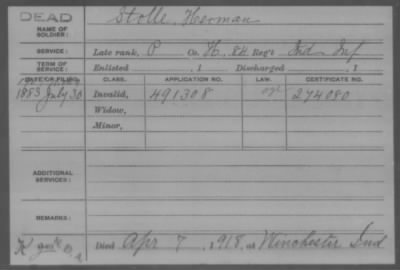 DEAD
NAME OF SOLDIER: Stolle, Herman
SERVICE: Late rank, P Co. H, 84 Reg't Ind Inf
TERM OF SERVICE: Enlisted , 1 Discharged , 1
DATE OF FILING. CLASS. APPLICATION NO. LAW. CERTIFICATE NO.
1883 July 30 Invalid, 491308 274080
Widow,
Minor,
ADDITIONAL SERVICES:
REMARKS:
Died Apr 7, 1918, at Winchester Ind